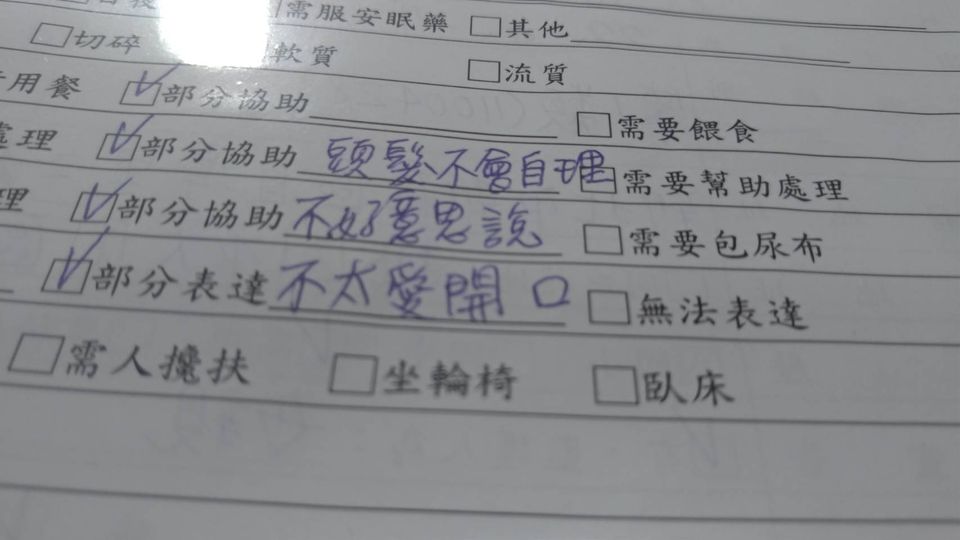 需服安眠藥 □其他
□切碎 軟質 □流質
用餐 ☑部分協助 □需要餵食
處理 ☑部分協助 頭髮不會自理 □需要幫助處理
理 ☑部分協助 不好意思說 □需要包尿布
☑部分表達 不太愛開口 □無法表達
□需人攙扶 □坐輪椅 □臥床